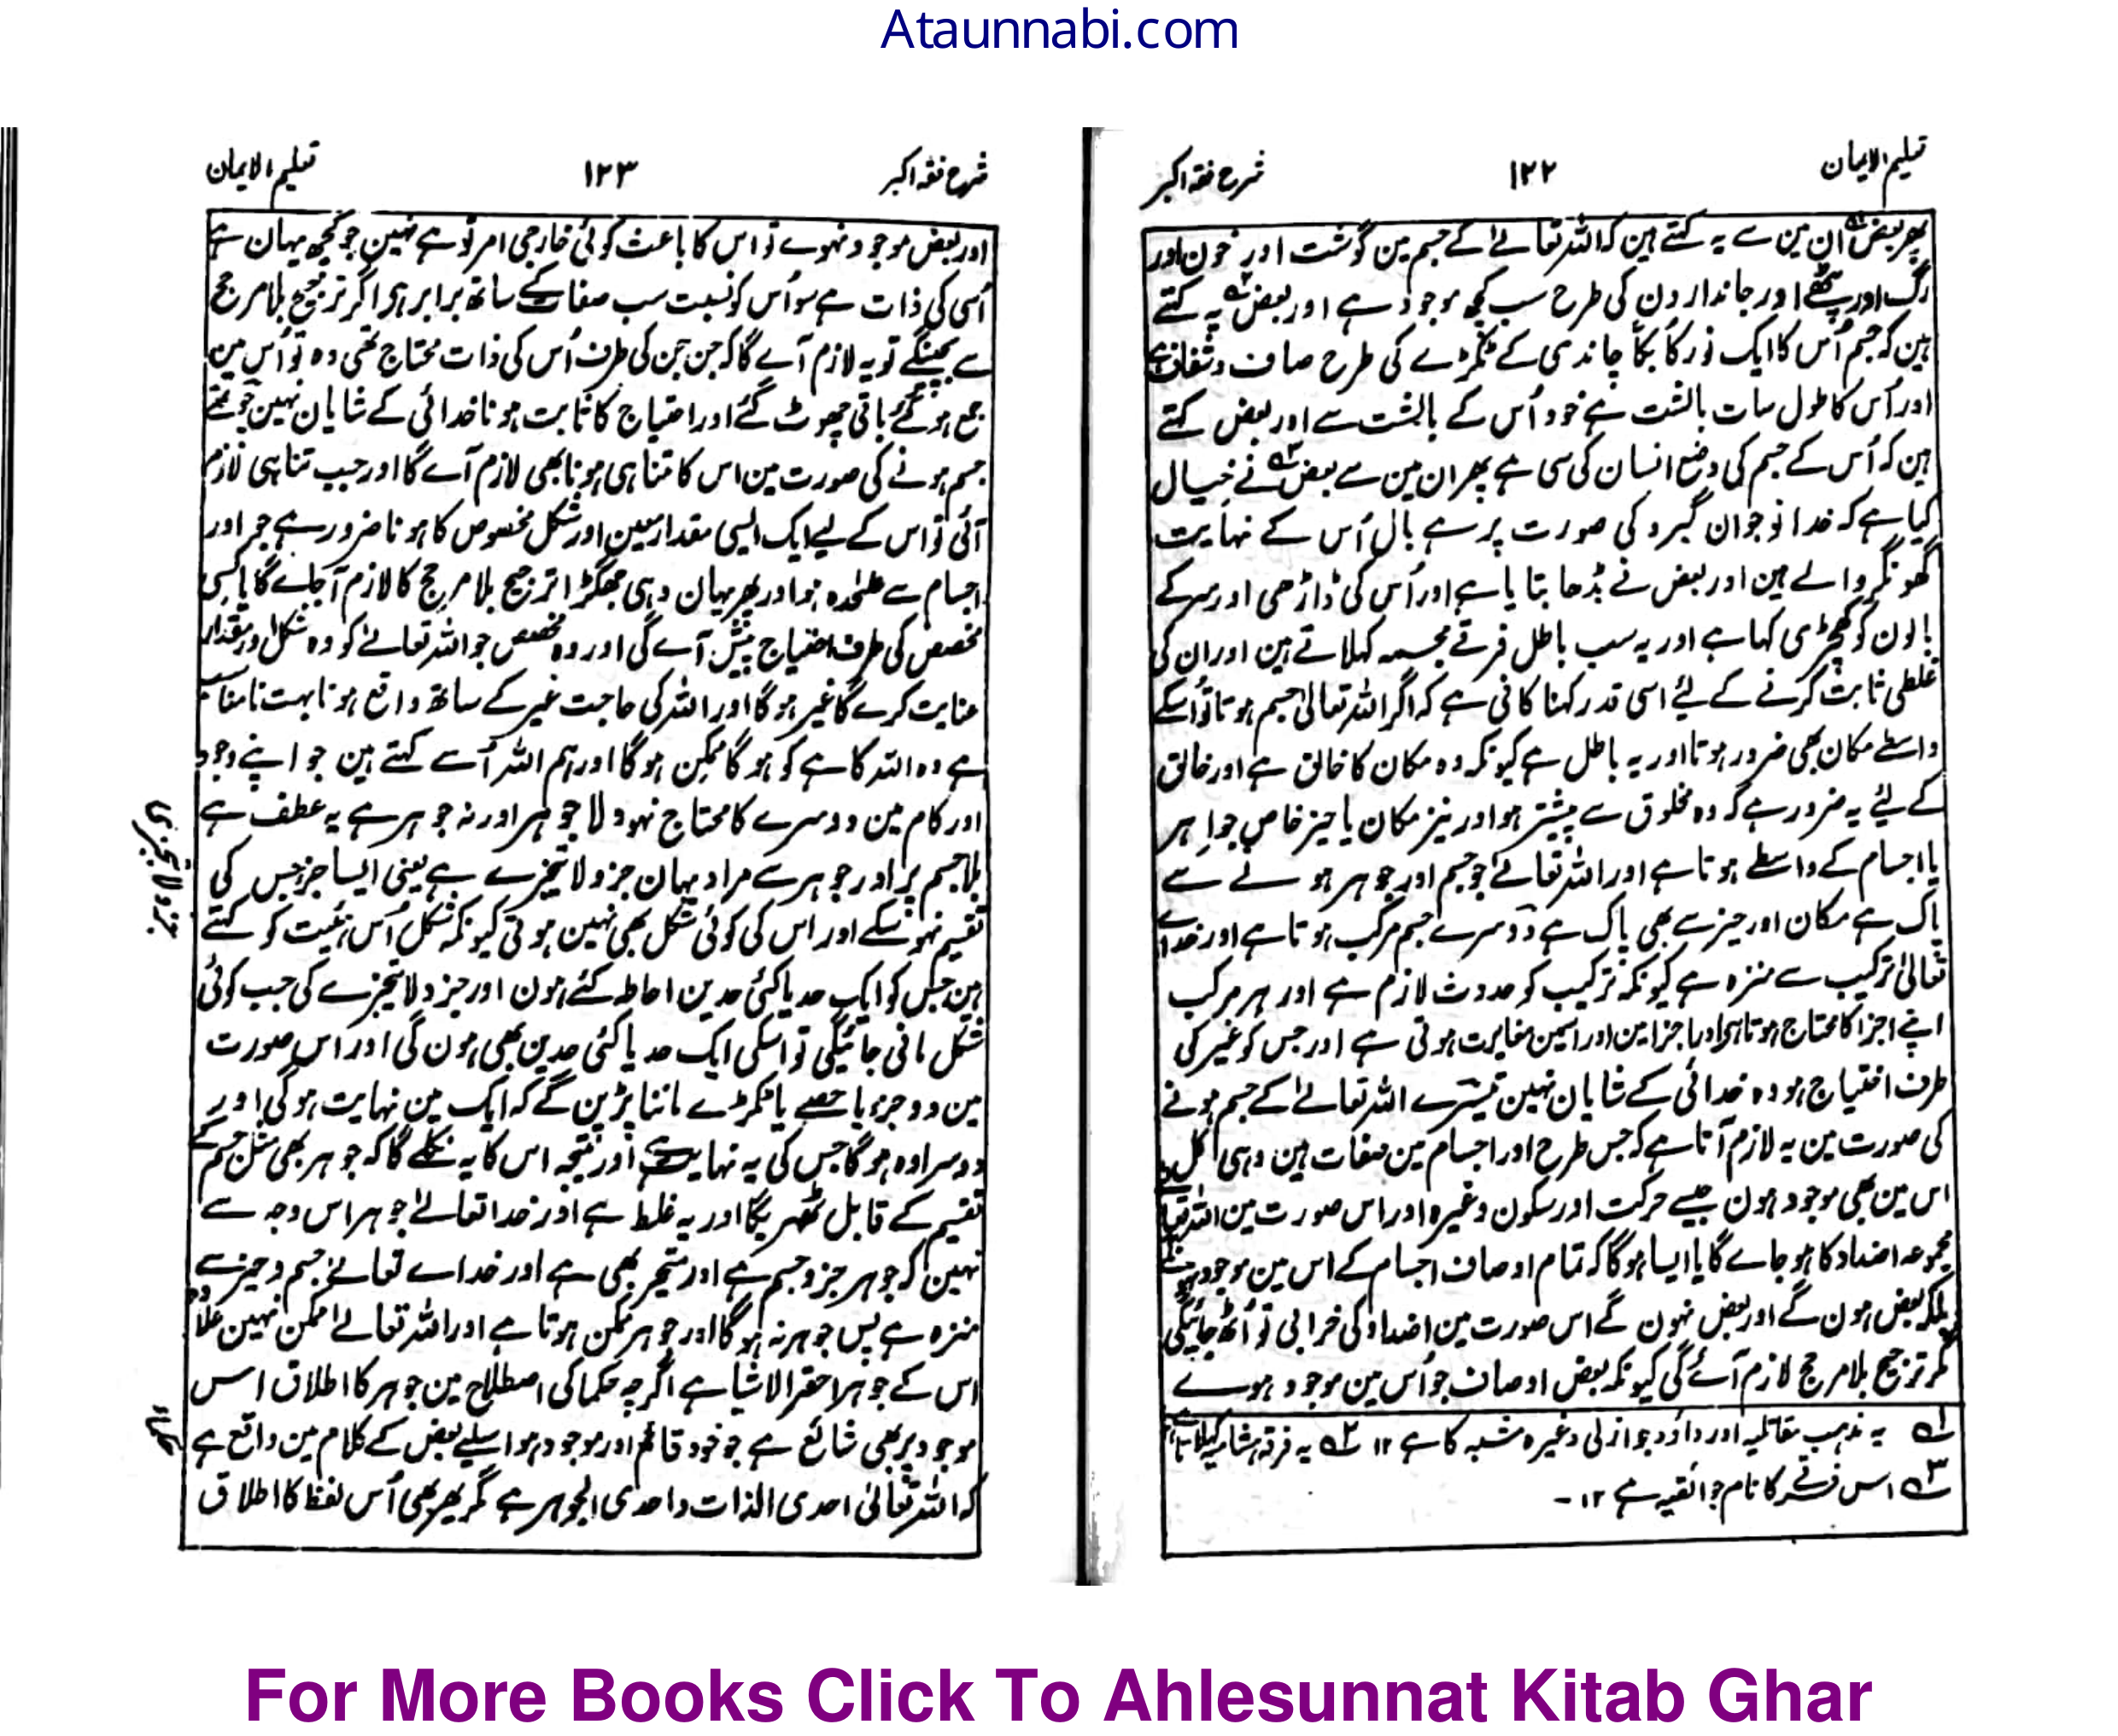 Ataunnabi.com
تعلیم الایمان ۱۲۲ شرح فقہ اکبر
پھر بعض ان مین سے یہ کہتے ہین کہ اللہ تعالےٰ کے جسم مین گوشت اور خون اور
رگ اور پٹھے اور جاندارون کی طرح سب کچھ موجود ہے اور بعض یہ کہتے
ہین کہ جسم اُس کا ایک نور کا بکّا چاندی کے ٹکڑے کی طرح صاف و شفاف ہے
اور اُس کا طول سات بالشت ہے خود اُس کے بالشت سے اور بعض کہتے
ہین کہ اُس کے جسم کی وضع انسان کی سی ہے پھر ان مین سے بعض نے خیال
کیا ہے کہ خدا نوجوان گبرو کی صورت پر ہے بال اُس کے نہایت
گھونگر والے ہین اور بعض نے بڈھا بتایا ہے اور اُس کی ڈاڑھی اور سر کے
بالون کو کھچڑی کہا ہے اور یہ سب باطل فرقے مجسمہ کہلاتے ہین اور ان کی
غلطی ثابت کرنے کے لئے اسی قدر کہنا کافی ہے کہ اگر اللہ تعالیٰ جسم ہوتا تو اُسکے
واسطے مکان بھی ضرور ہوتا اور یہ باطل ہے کیونکہ وہ مکان کا خالق ہے اور خالق
کے لیے یہ ضرور ہے کہ وہ مخلوق سے پیشتر ہو اور نیز مکان یا حیز خاص جواہر
یا اجسام کے واسطے ہوتا ہے اور اللہ تعالےٰ جو جسم اور جوہر ہونے سے
پاک ہے مکان اور حیز سے بھی پاک ہے دوسرے جسم مرکب ہوتا ہے اور خداے
تعالیٰ ترکیب سے منزہ ہے کیونکہ ترکیب کو حدوث لازم ہے اور ہر مرکب
اپنے اجزا کا محتاج ہوتا ہے اور اجزا مین اور اسمین مغایرت ہوتی ہے اور جس کو غیر کی
طرف احتیاج ہو وہ خدائی کے شایان نہین تیسرے اللہ تعالےٰ کے جسم ہونے
کی صورت مین یہ لازم آتا ہے کہ جس طرح اور اجسام مین صفات ہین وہی کل
اس مین بھی موجود ہون جیسے حرکت اور سکون وغیرہ اور اس صورت مین اللہ تعالے
مجموعہ اضداد کا ہو جاے گا یا ایسا ہوگا کہ تمام اوصاف اجسام کے اس مین موجود
بلکہ بعض ہون گے اور بعض نہون گے اس صورت مین اضداد کی خرابی تو اُٹھ جائیگی
مگر ترجیح بلا مرجح لازم آئے گی کیونکہ بعض اوصاف جو اُس مین موجود ہوے
۱ یہ مذہب مقاتلیہ اور داؤد جوازلی وغیرہ مشبہ کا ہے ۱۲ ۲ یہ فرقہ ہشامیہ کہلاتا ہے
۳ اس فرقے کا نام جوالقیہ ہے ۱۲ -
شرح فقہ اکبر ۱۲۳ تعلیم الایمان
اور بعض موجود نہوے تو اس کا باعث کوئی خارجی امر تو ہے نہین جو کچھ یہان ہے
اُسی کی ذات ہے سو اُس کو نسبت سب صفات کے ساتھ برابر ہی اگر ترجیح بلا مرجح
سے بچینگے تو یہ لازم آے گا کہ جن جن کی طرف اُس کی ذات محتاج تھی وہ تو اُس مین
جمع ہو گئے باقی چھوٹ گئے اور احتیاج کا ثابت ہونا خدائی کے شایان نہین چوتھے
جسم ہونے کی صورت مین اس کا متناہی ہونا بھی لازم آے گا اور جب تناہی لازم
آئی تو اس کے لیے ایک ایسی مقدار معین اور شکل مخصوص کا ہونا ضرور ہے جو اور
اجسام سے علٰحدہ ہو اور پھر یہان وہی جھگڑا ترجیح بلا مرجح کا لازم آجاے گا یا کسی
مخصص کی طرف احتیاج پیش آے گی اور وہ مخصص جو اللہ تعالےٰ کو وہ شکل اور مقدار
عنایت کرے گا غیر ہوگا اور اللہ کی حاجت غیر کے ساتھ واقع ہونا بہت نامناسب
ہے وہ اللہ کاہے کو ہوگا ممکن ہوگا اور ہم اللہ اُسے کہتے ہین جو اپنے وجود
اور کام مین دوسرے کا محتاج نہو ولا جوھر اور نہ جوہر ہے یہ عطف ہے
بلا جسم پر اور جوہر سے مراد یہان جزو لا تیجزے ہے یعنی ایسا جز جس کی
تقسیم نہو سکے اور اس کی کوئی شکل بھی نہین ہوتی کیونکہ شکل اُس ہئیت کو کہتے
ہین جسکو ایک حد یا کئی حدین احاطہ کئے ہون اور جزو لا تیجزے کی جب کوئی
شکل مانی جائیگی تو اسکی ایک حد یا کئی حدین بھی ہون گی اور اس صورت
مین دو جزء یا حصے یا ٹکڑے ماننا پڑین گے کہ ایک مین نہایت ہوگی اور
دوسرا وہ ہوگا جس کی یہ نہایت ہے اور نتیجہ اس کا یہ نکلے گا کہ جوہر بھی مثل جسم کے
تقسیم کے قابل ٹھہریگا اور یہ غلط ہے اور خدا تعالےٰ جوہر اس وجہ سے
نہین کہ جوہر جزو جسم ہے اور متحیز بھی ہے اور خداے تعالےٰ جسم و حیز سے
منزہ ہے پس جوہر نہ ہوگا اور جوہر ممکن ہوتا ہے اور اللہ تعالےٰ ممکن نہین علاوہ
اس کے جوہر احقر الاشیا ہے اگرچہ حکما کی اصطلاح مین جوہر کا اطلاق اس
موجود پر بھی شائع ہے جو خود قائم اور موجود ہو اسلیے بعض کے کلام مین واقع ہے
کہ اللہ تعالیٰ احدی الذات واحدی الجوہر ہے مگر پھر بھی اُس لفظ کا اطلاق
جزو لا تیجزی
For More Books Click To Ahlesunnat Kitab Ghar